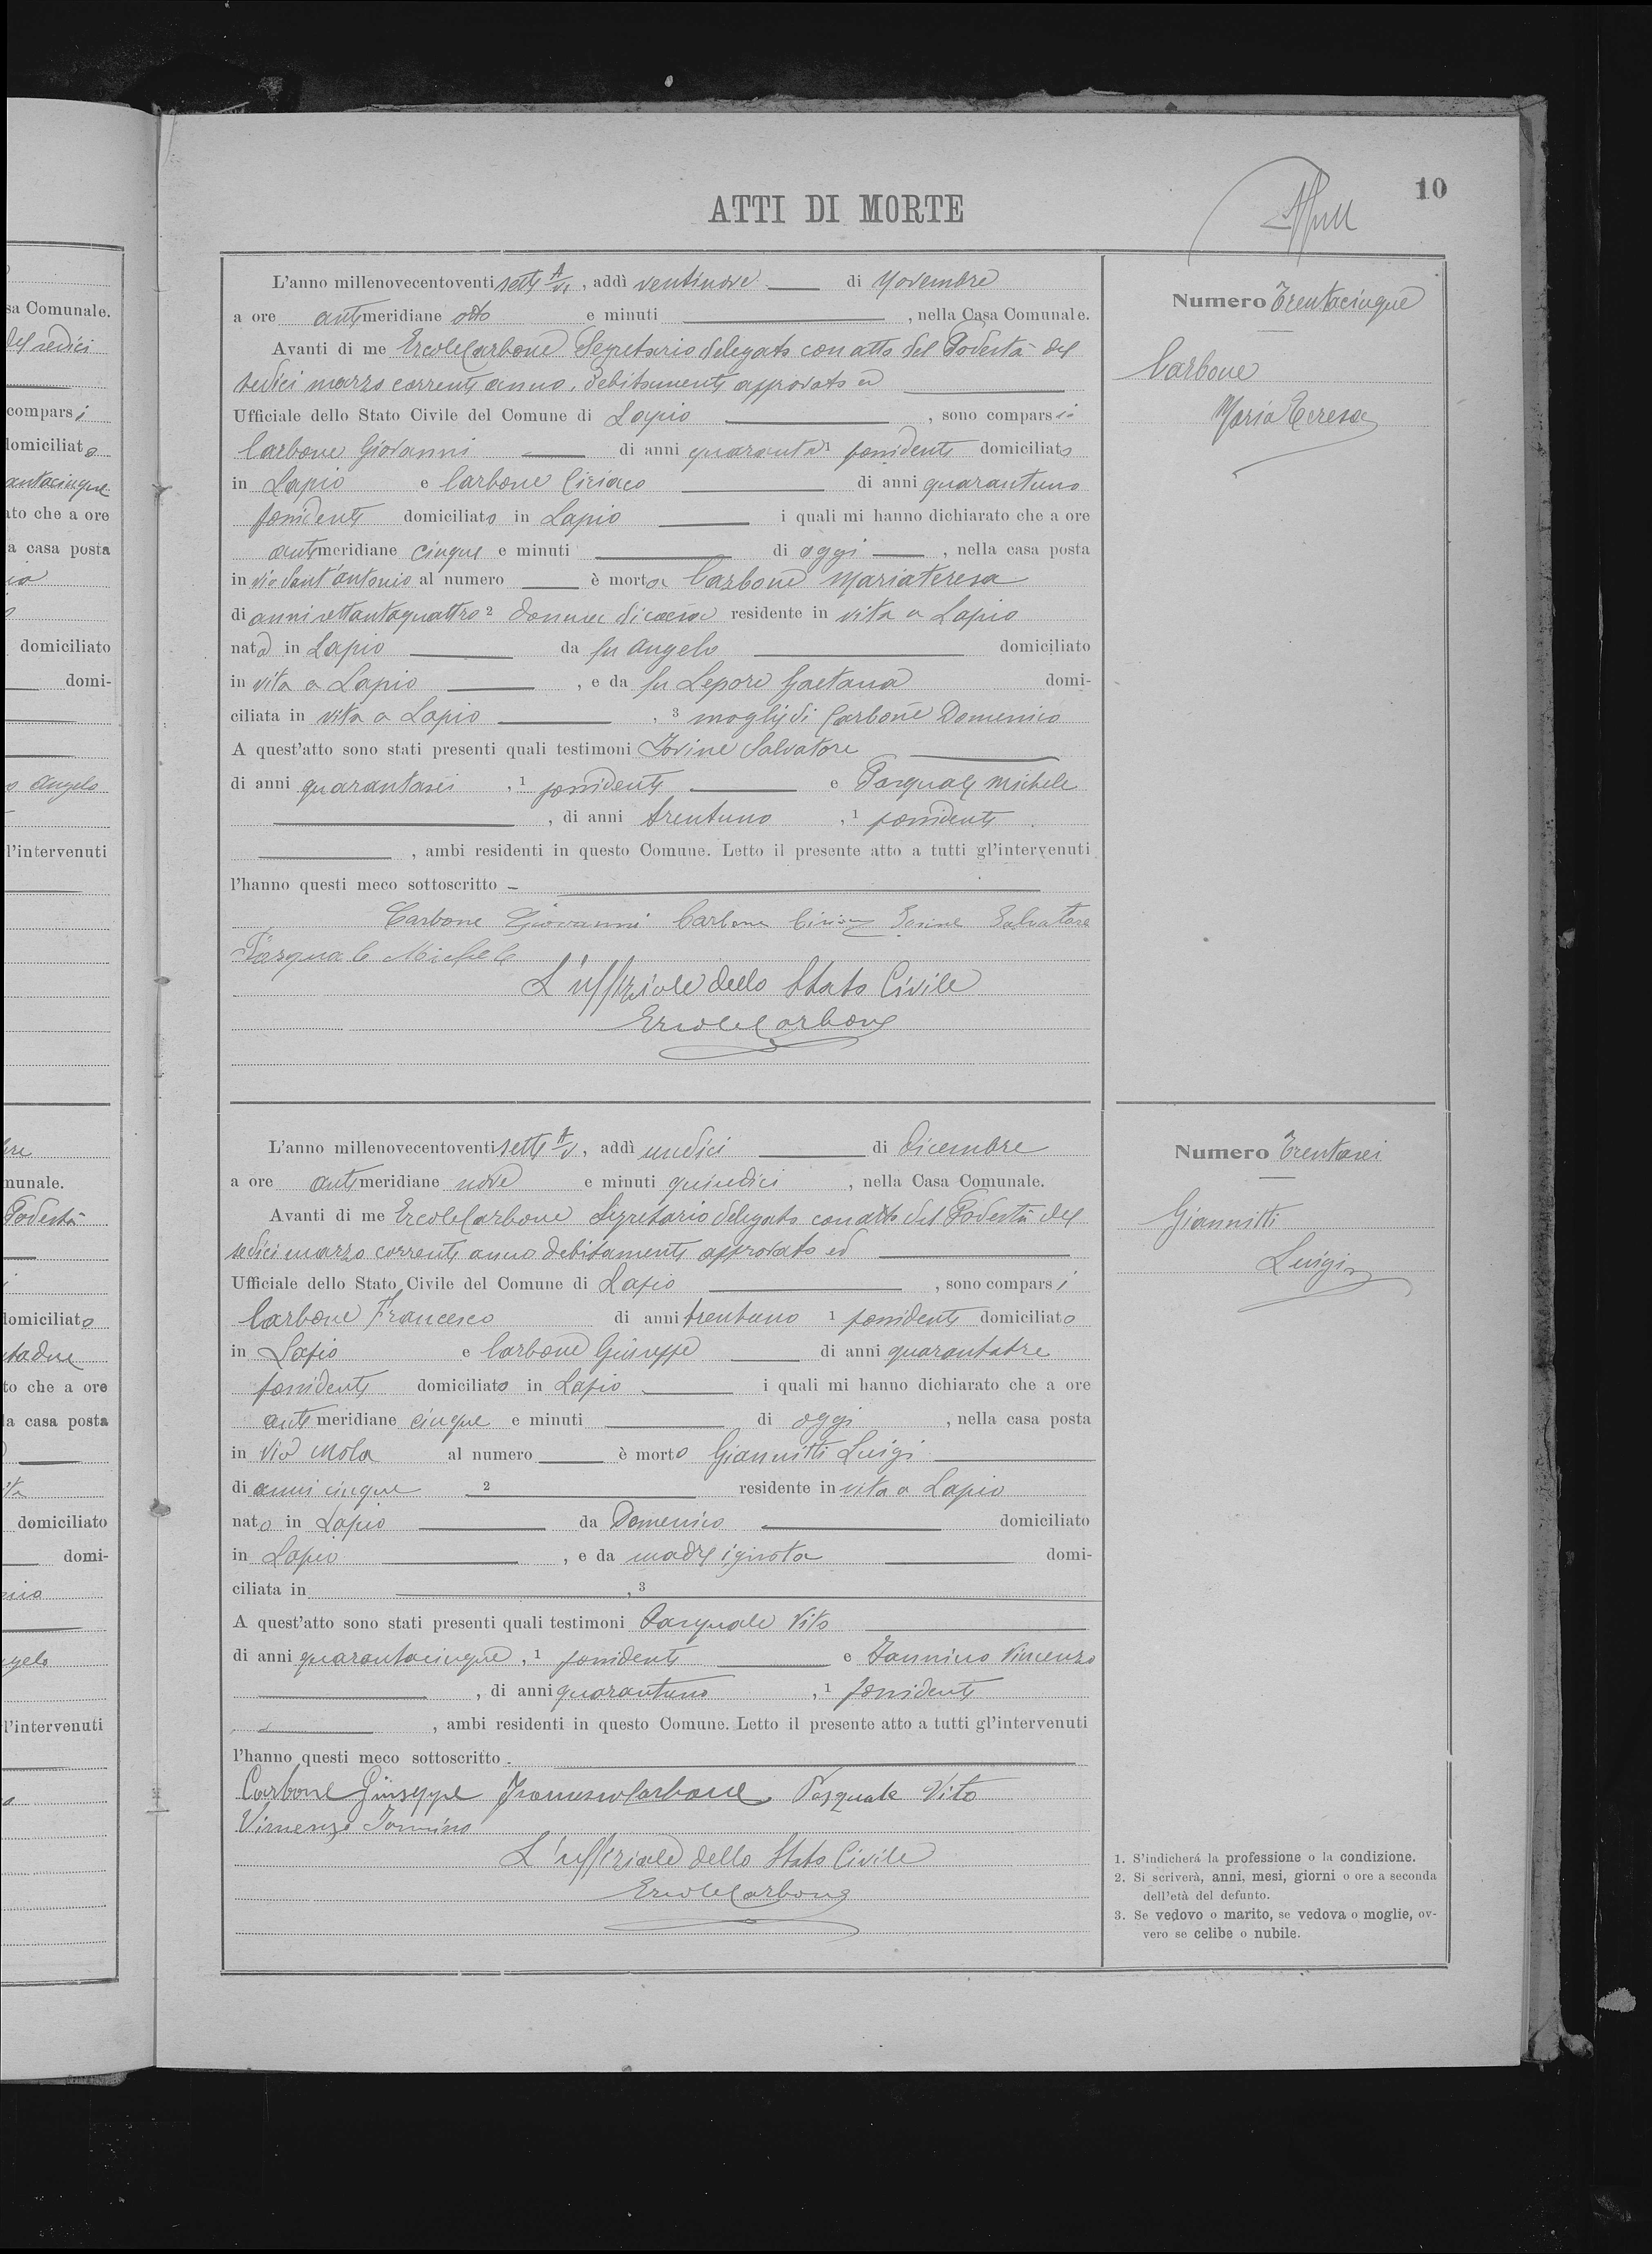 sa Comunale.
del sedici
compars i
domiciliat o
antacinque
ato che a ore
a casa posta
domiciliato
domi-
angelo
l'intervenuti
munale.
Podestà
domiciliato
ntadue
to che a ore
la casa posta
domiciliato
domi-
l'intervenuti
10
ATTI DI MORTE
L'anno millenovecentoventisette A/VI, addì ventinove di Novembre
a ore antimeridiane otto e minuti , nella Casa Comunale.
Avanti di me Ercole Carbone Segretario delegato con atto del Podestà del
sedici marzo corrente anno, debitamente approvato ed
Ufficiale dello Stato Civile del Comune di Lapio , sono comparsi
Carbone Giovanni di anni quaranta 1 possidente domiciliato
in Lapio e Carbone Ciriaco di anni quarantuno
possidente domiciliato in Lapio i quali mi hanno dichiarato che a ore
antimeridiane cinque e minuti di oggi , nella casa posta
in via Sant'antonio al numero è morta Carbone Mariateresa
di anni settantaquattro 2 donna di casa residente in vita a Lapio
nata in Lapio da fu Angelo domiciliato
in vita a Lapio , e da fu Lepore Gaetana domi-
ciliata in vita a Lapio , 3 moglie di Carbone Domenico
A quest'atto sono stati presenti quali testimoni Iovine Salvatore
di anni quarantasei , 1 possidente e Pasquale Michele
, di anni trentuno , 1 possidente
, ambi residenti in questo Comune. Letto il presente atto a tutti gl'intervenuti
l'hanno questi meco sottoscritto
Carbone Giovanni Carbone Ciriaco Iovine Salvatore
Pasquale Michele
L'uffiziale dello Stato Civile
Ercole Carbone
Numero Trentacinque
Carbone
Maria Teresa
L'anno millenovecentoventisette A/VI, addì undici di Dicembre
a ore antimeridiane nove e minuti quindici , nella Casa Comunale.
Avanti di me Ercole Carbone Segretario delegato con atto del Podestà del
sedici marzo corrente anno debitamente approvato ed
Ufficiale dello Stato Civile del Comune di Lapio , sono comparsi
Carbone Francesco di anni trentuno 1 possidente domiciliato
in Lapio e Carbone Giuseppe di anni quarantatre
possidente domiciliato in Lapio i quali mi hanno dichiarato che a ore
antimeridiane cinque e minuti di oggi , nella casa posta
in via Mola al numero è morto Giannitti Luigi
di anni cinque 2 residente in vita a Lapio
nato in Lapio da Domenico domiciliato
in Lapio , e da madre ignota domi-
ciliata in , 3
A quest'atto sono stati presenti quali testimoni Pasquale Vito
di anni quarantacinque , 1 possidente e Iannino Vincenzo
, di anni quarantuno , 1 possidente
, ambi residenti in questo Comune. Letto il presente atto a tutti gl'intervenuti
l'hanno questi meco sottoscritto.
Carbone Giuseppe Francesco Carbone Pasquale Vito
Vincenzo Iannino
L'uffiziale dello Stato Civile
Ercole Carbone
Numero Trentasei
Giannitti
Luigi
1. S'indicherá la professione o la condizione.
2. Si scriverà, anni, mesi, giorni o ore a seconda
dell'età del defunto.
3. Se vedovo o marito, se vedova o moglie, ov-
vero se celibe o nubile.